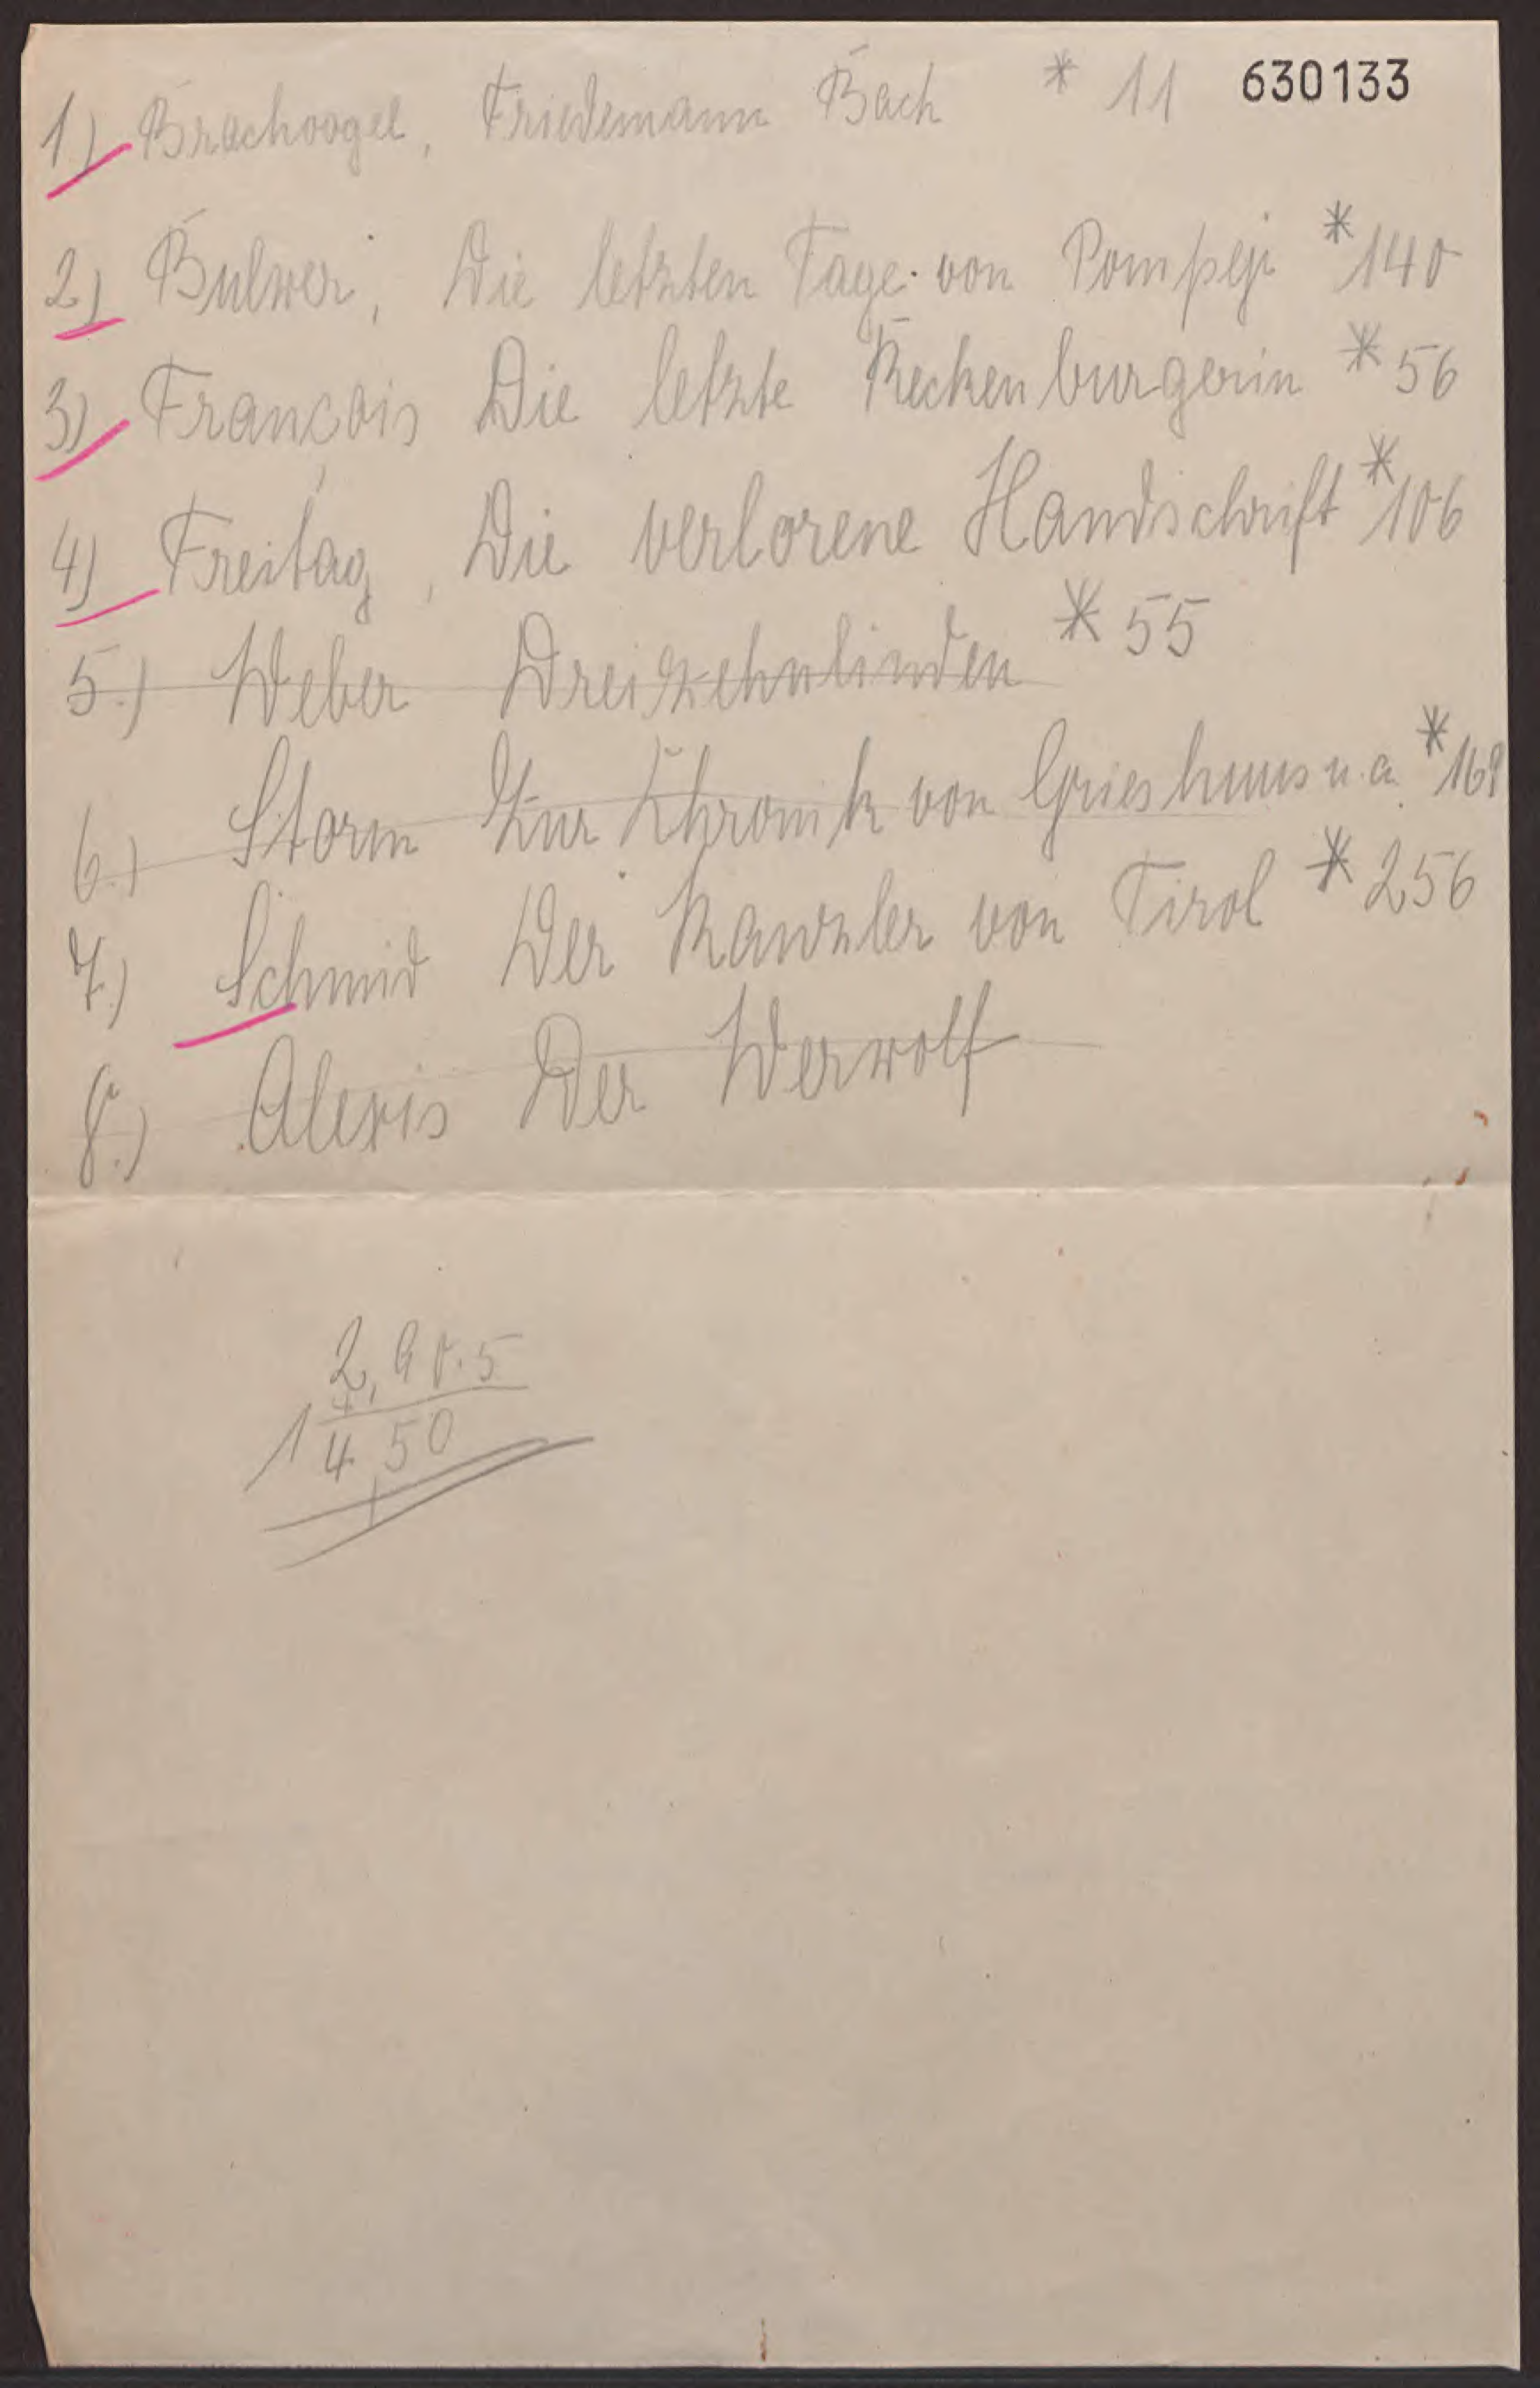 1) Brachvogel, Friedemann Bach * 11 630133
2) Bulwer, Die letzten Tage von Pompeji * 140
3) François Die letzte Reckenburgerin * 56
4) Freitag, Die verlorene Handschrift * 106
5.) Weber Dreizehnlinden * 55
6.) Storm Zur Chronik von Grieshuus u.a. *
7.) Schmid Der Kanzler von Tirol * 256
8.) Alexis Der Werwolf
2,90.5
14,50